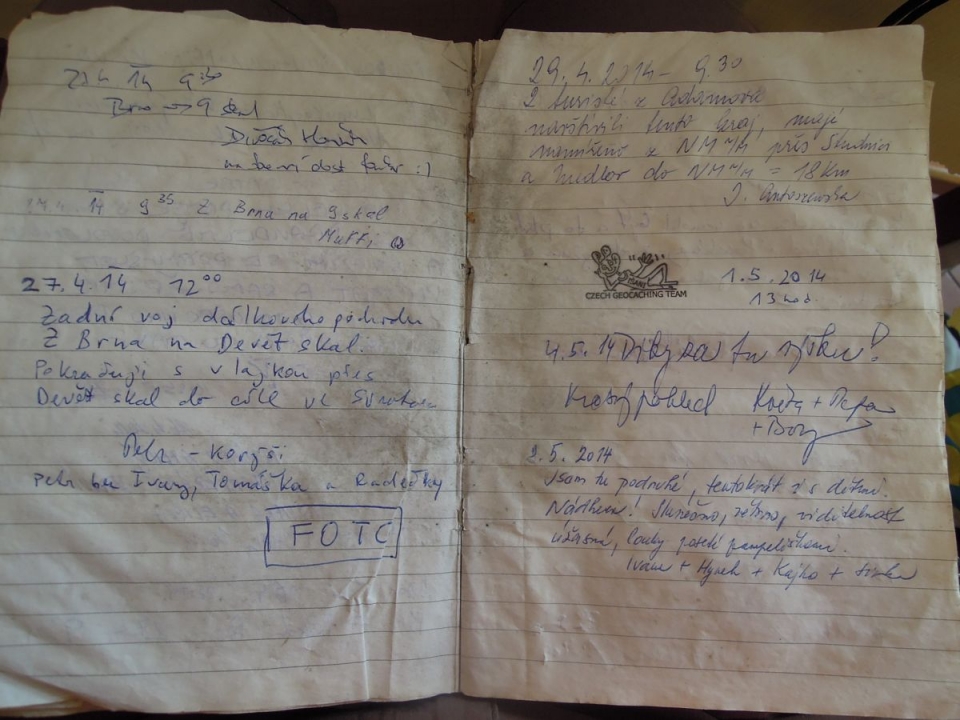 14 9 30
Brno → 9 skal
na   dost  :)
14 9 35 Z Brna na 9 skal
27.4.14 12 00
Zadní voj dálkového pochodu
Z Brna na Devět skal.
Pokračuji s vlajkou přes
Devět skal do cíle ve
Petr -
Petr bez Ivany, Tomáška a Radečky
FOTC
29.4.2014 - 9.30
2 turisté z Adamova
navštívili tento kraj, mají
namířeno z NM n/M přes
a do NM n/M = 18 km
J.
CZECH GEOCACHING TEAM
1.5.2014
13 hod
4.5.14 Díky za tu výšku!
Krásný pohled Květa + Pepa
+
9.5.2014
Jsem tu podruhé, tentokrát i s dětmi.
Nádhera! Slunečno, větrno, viditelnost
úžasná, louky poseté pampeliškami.
Ivana + Hynek + Kajka +